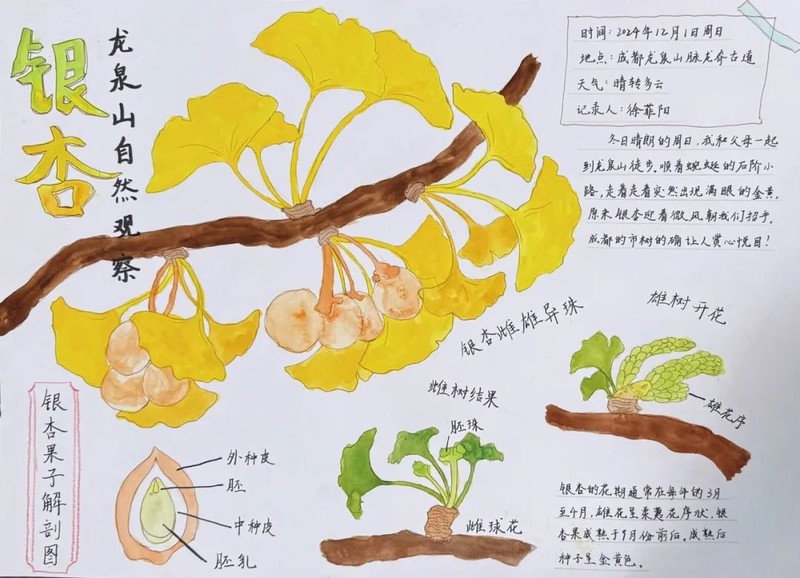 银杏
龙泉山自然观察
时间:2024年12月1日周日
地点:成都龙泉山脉龙脊古道
天气:晴转多云
记录人:徐菲阳
冬日晴朗的周日,我和父母一起
到龙泉山徒步。顺着蜿蜒的石阶小
路,走着走着突然出现满眼的金黄,
原来银杏迎着微风朝我们招手。
成都的市树的确让人赏心悦目!
银杏雌雄异珠
雄树开花
雄花序
雌树结果
胚珠
雌球花
银杏果子解剖图
外种皮
胚
中种皮
胚乳
银杏的花期通常在每年的3月
至4月,雄花呈柔荑花序状,银
杏果成熟于9月份前后。成熟后
种子呈金黄色。